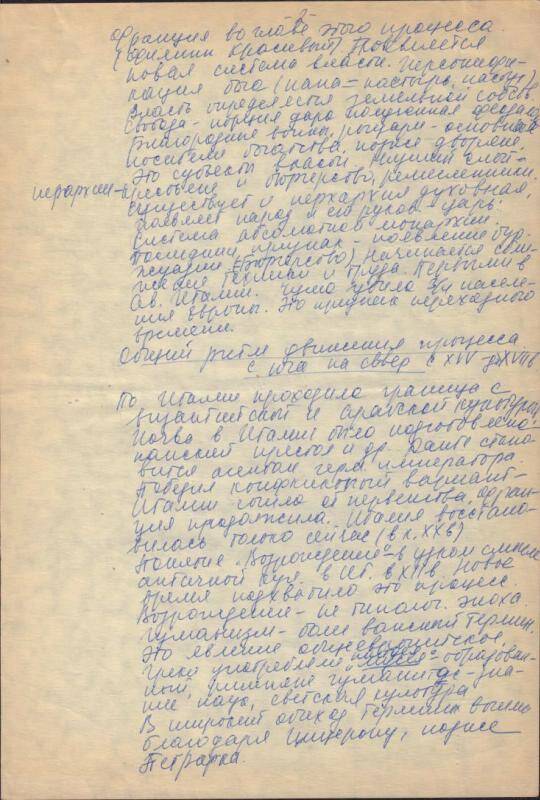 2
Франция во главе этого процесса.
(Филипп Красивый) Появляется
новая система власти. Персонифи-
кация была (папа = пастырь, пастух)
Власть определяется земельной собств.
Свобода - порядка дара полученная феодалом
Благородные воины, рыцари - основные
носители богатства, позже дворяне.
Это субъекты власти. Низший слой -
иерархии - кресьяне и бюргерство, ремесленники.
Существует и иерархия духовная,
являет народ и его руков. - царь.
Система абсолютной монархии.
Последний признак - появление бур-
жуазии (бюргерство) Начинается
жение техники и труда. Первыми в
Св. Италии. Чума убила 3/4 населе-
ния Европы. Это признак переходного
времени.
Общий ритм движения процесса
с юга на север с XIV до XVII в
По Италии проходила граница с
византийской и арабской культурой
Почва в Италии была подготовлена:
папский престол и др. Данте стано-
вится агентом герм. императора
Победил конфликтный вариант -
Италия ушла от первенства, Фран-
ция продолжила. Италия восстано-
вилась только сейчас (в к. XX в)
Понятие "Возрождение" в узком смысле
античной кул. в Ит. в XII в. Новое
время подхватило это процесс.
Возрождение - не типолог. эпоха.
Гуманизм - более важный термин.
Это явление общеевропейское,
греки употребляли - образован-
ный, римляне гуманитас - зна-
ние наук, светская культура
В широкий обиход термин вошел
благодаря Цицерону, позже
Петрарка.